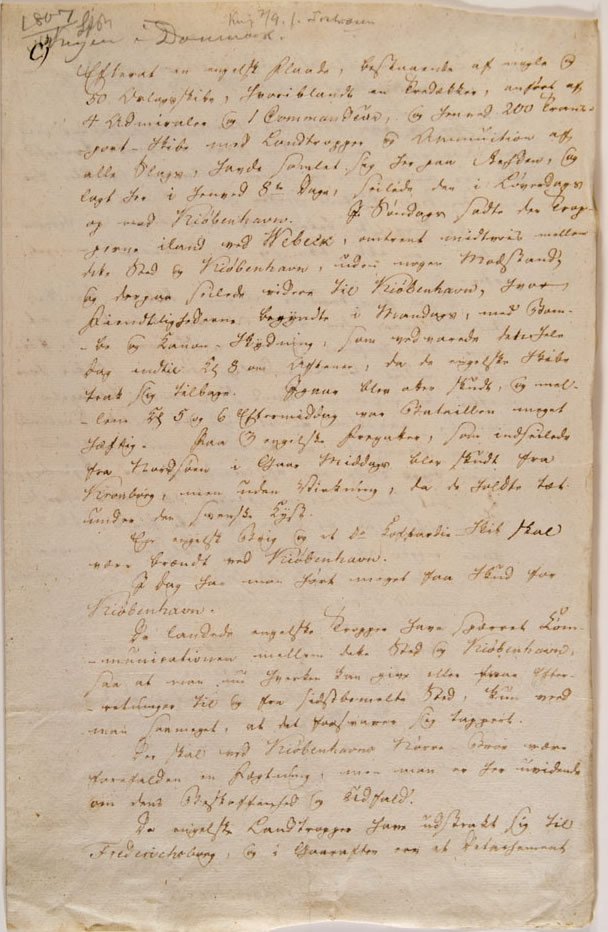 1807
Krigen i Danmark.
Efterat en engelsk Flaade, bestaaende af nogle og
50 Orlogsskibe, hvoriblandt en Tredækker, anført af
4 Admiraler og 1 Commandeur, og henved 200 Trans-
port-Skibe med Landtropper og Ammunition af
alle Slags, havde samlet sig her paa Rheden, og
lagt her i henved 8te Dage, seilede den i Løverdags
op mod Kiøbenhavn. I Søndags satte den Trop-
perne iland ved Webeck, omtrent midtveis mellem
dette Sted og Kiøbenhavn, uden nogen Modstand,
og derpaa seilede videre til Kiøbenhavn, hvor
Fiendtlighederne begyndte i Mandags, med Bom-
-be og Kanon-Skydning, som vedvarede den hele
Dag indtil Kl 8 om Aftenen, da de engelske Skibe
trak sig tilbage. Igaar blev atter skudt, og mel-
-lem Kl 5 og 6 Eftermiddag var Bataillen meget
hæftig. Paa 3 engelske Fregatter, som indseilede
fra Nordsøen i Gaar Middags blev skudt fra
Kronborg, men uden Virkning, da de holdte tæt
under den svenske Kyst.
En engelsk Brig og et Do Koffardie-Skib skal
være brændt ved Kiøbenhavn.
I Dag har man hørt meget faa Skud for
Kiøbenhavn.
De landede engelske Tropper have spærret Com-
-munications mellem dette Sted og Kiøbenhavn,
saa at man nu hverken kan give eller faae Efter-
-retninger til og fra sidstbemelte Sted, kun veed
man saameget, at det forsvarer sig tappert.
Der skal ved Kiøbenhavns Nørre-Port være
forefalden en Fægtning, men man er her uvidende
om dens Beskaffenhed og Udfald.
De engelske Landtropper have udstrakt sig til
Friderichsborg, og i Gaaraftes var et Detachement